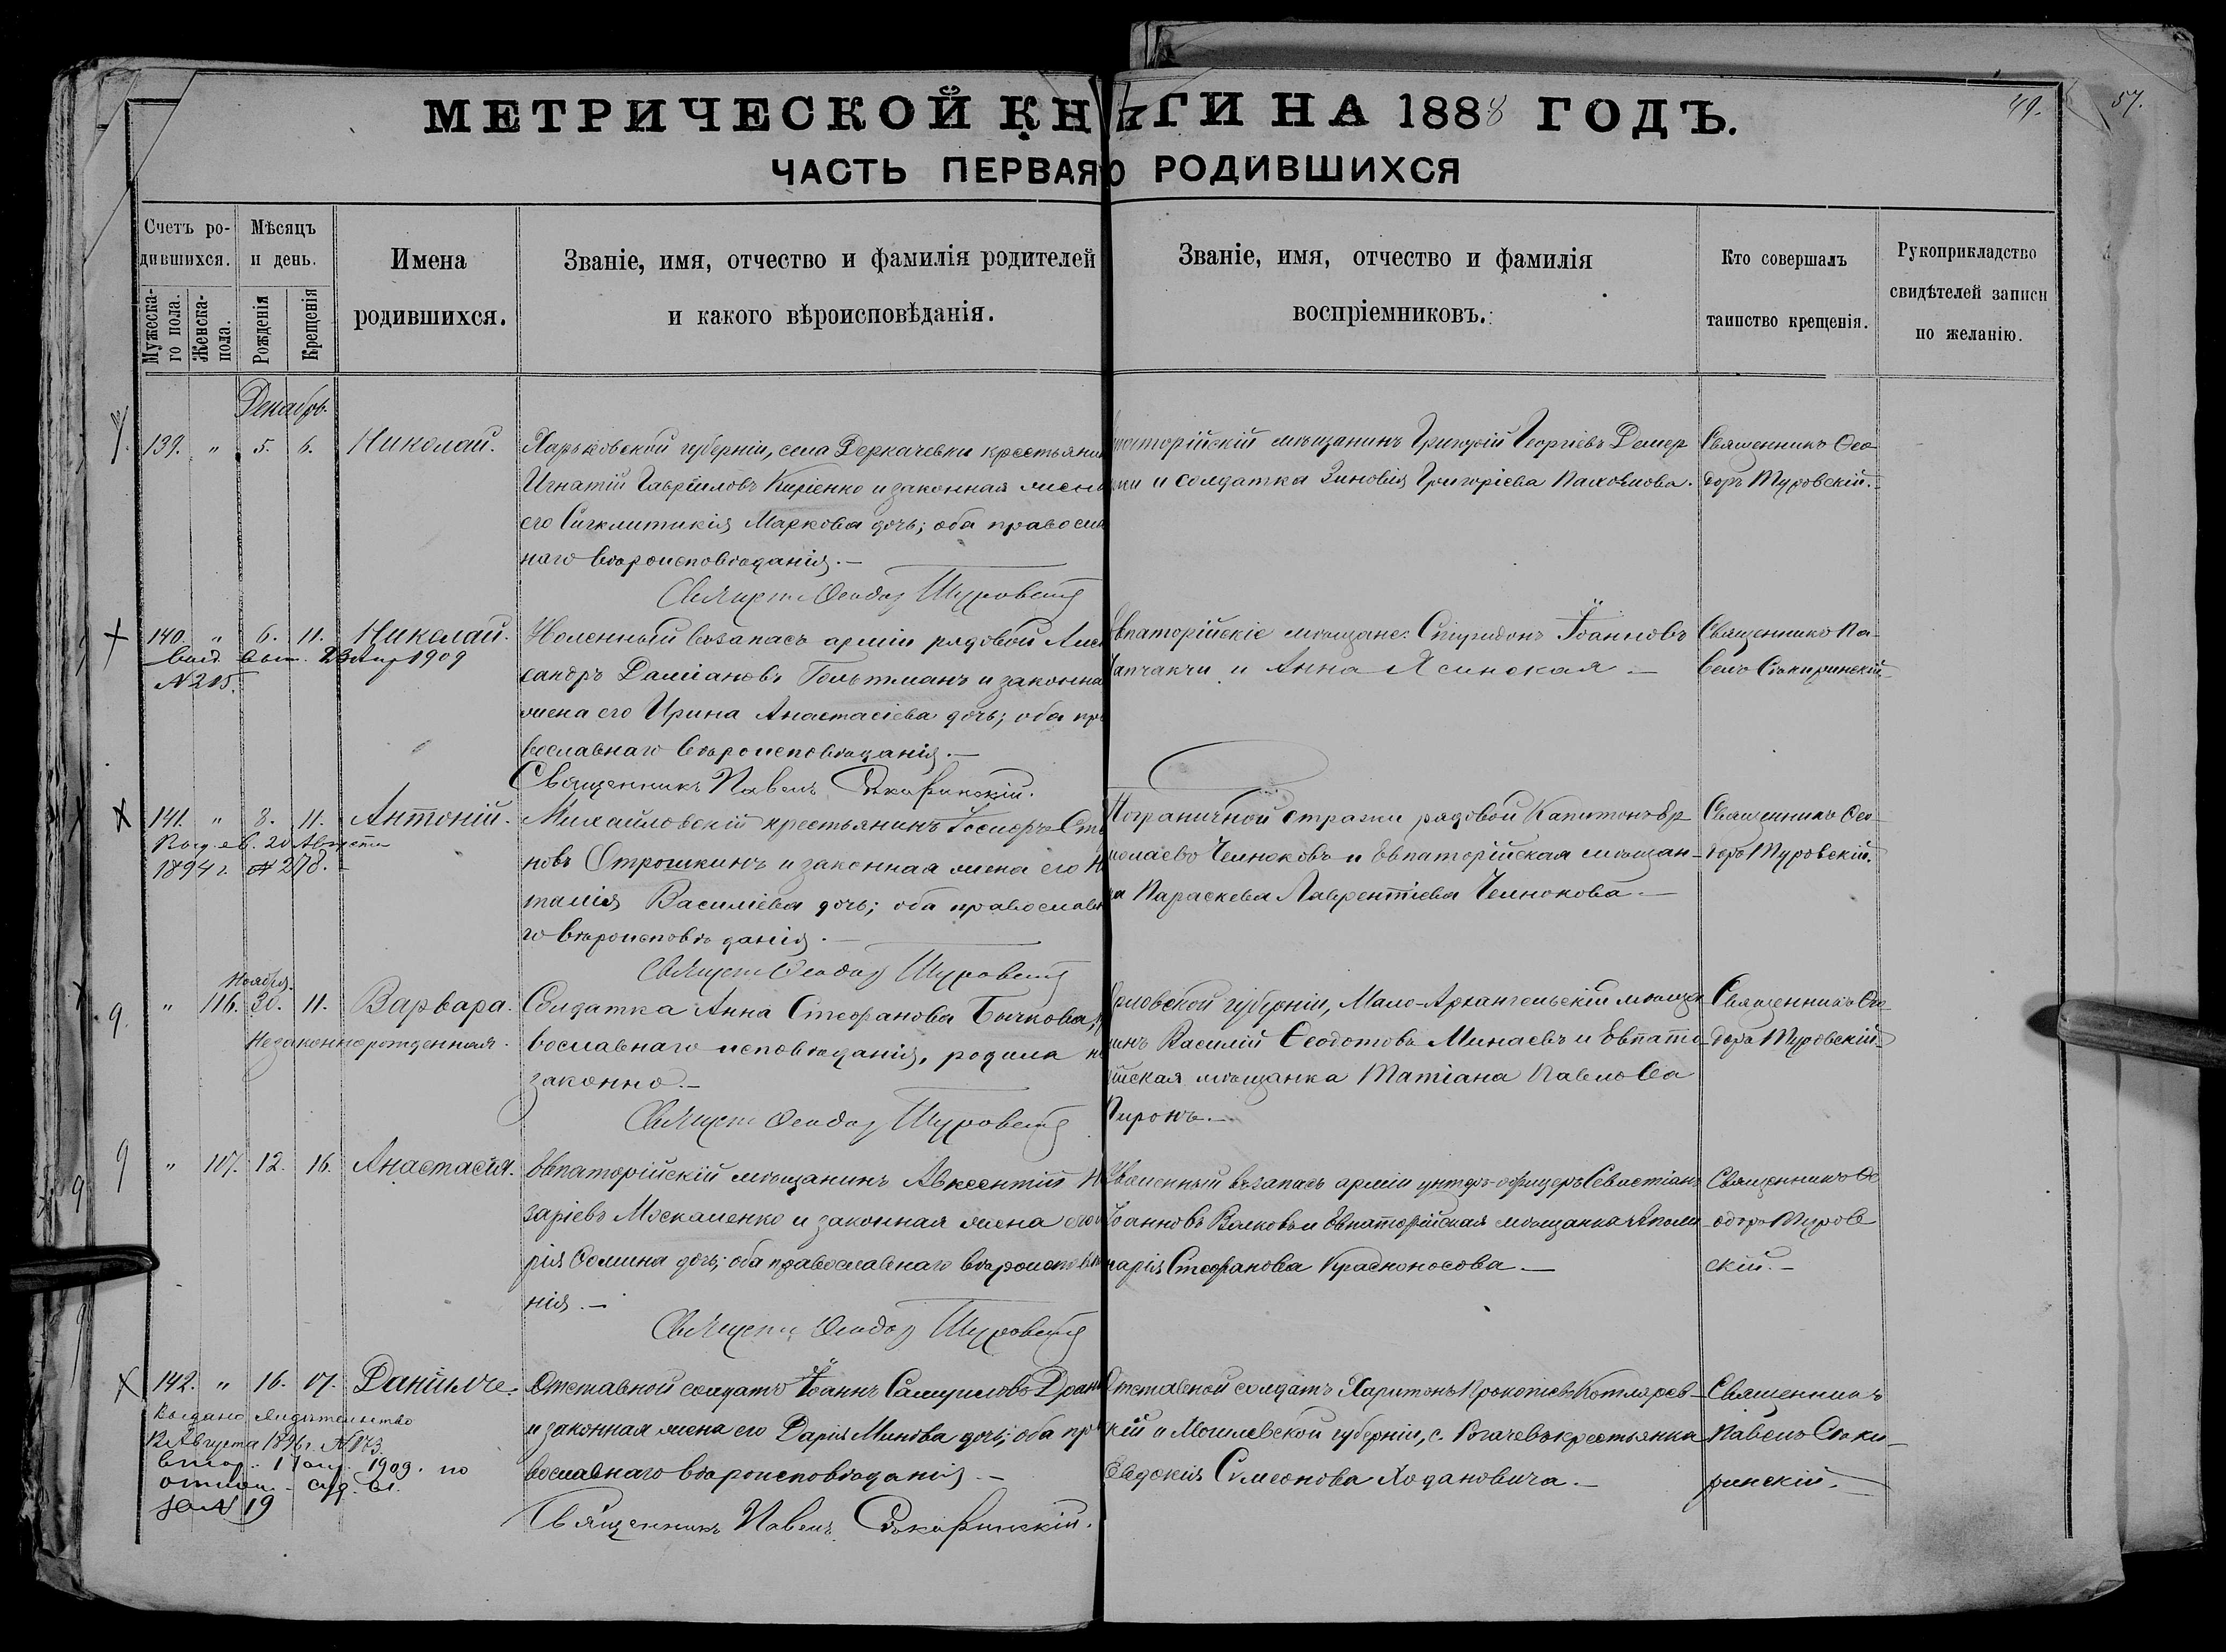 МЕТРИЧЕСКОЙ КНИГИ НА 1888 ГОДЪ.
49.
57.
ЧАСТЬ ПЕРВАЯ О РОДИВШИХСЯ
Счетъ ро-
дившихся.
Мужеска-
го пола.
Женска-
пола.
Мѣсяцъ
и день.
Рожденія
Крещенія
Имена
родившихся.
Званіе, имя, отчество и фамилія родителей
и какого вѣроисповѣданія.
Званіе, имя, отчество и фамилія
воспріемниковъ.
Кто совершалъ
таинство крещенія.
Рукоприкладство
свидѣтелей записи
по желанію.
Декабрь
139. " 5. 6. Николай.
Харьковской губерніи, села Деркачевки крестьянин
Игнатій Гавріиловъ Киріенко и законная жена
его Сигклитикія Маркова дочь; оба правосла
наго вѣроисповѣданія.—
Священ. Ѳеодоръ Туровскій
паторійскій мѣщанинъ Григорій Георгіевъ Демер
жи и солдатка Зиновія Григоріева Пахомова.
Священникъ Ѳео-
доръ Туровскій.
140. " 6. 11. Николай.
1909
N 215.
Уволенный въ запасъ арміи рядовой Алек
сандръ Даміановъ Гольтманъ и законна
жена его Ирина Анастасіева дочь; оба пра
вославнаго вѣроисповѣданія.—
Священникъ Павелъ Сѣкиринскій.
Евпаторійскіе мѣщане: Спиридонъ Іоанновъ
Чапчакчи и Анна Ясинская —
Священникъ Па-
велъ Сѣкиринскій
141. " 8. 11. Антоній.
Выд. св. 20 Августа
1894 г. № 278.
Михайловскій крестьянинъ Госифъ Сте
новъ Отрошкинъ и законная жена его На
талія Василіева дочь; оба православна
го вѣроисповѣданія.—
Священ. Ѳеодоръ Туровскій
Пограничной стражи рядовой Капитонъ Ер
молаевъ Челноковъ и Евпаторійская мѣщан-
ка Параскева Лаврентіева Челнокова.—
Священникъ Ѳео-
доръ Туровскій.
Ноября.
" 116. 30. 11. Варвара.
Незаконнорожденная.
Солдатка Анна Стефанова Бычкова, п
вославнаго исповѣданія, родила не
законно.—
Священ. Ѳеодоръ Туровскій
Орловской губерніи, Мало-Архангельскій мѣщан
инъ Василій Ѳеодотовъ Минаевъ и Евпато
ійская мѣщанка Татіана Павлова
Пиронъ.—
Священникъ Ѳео
доръ Туровскій
" 117. 12. 16. Анастасія.
Евпаторійскій мѣщанинъ Авксентій На
заріевъ Москаленко и законная жена его
рія Ѳомина дочь; оба православнаго вѣроисповѣда
нія.—
Священ. Ѳеодоръ Туровскій
Уволенный въ запасъ арміи унтеръ-офицеръ Севастіанъ
Іоанновъ Волковъ и Евпаторійская мѣщанка Аполи
нарія Стефанова Красноносова.—
Священникъ Ѳе
одоръ Туров
скій.—
142. " 16. 17. Даніилъ.
Выдано свидѣтельство
12 Августа 1896 г. N 173.
1909. по
за N 19
Отставной солдатъ Іоаннъ Самуиловъ Драни
и законная жена его Дарія Минова дочь; оба пра
вославнаго вѣроисповѣданія.—
Священникъ Павелъ Сѣкиринскій.
Отставной солдатъ Харитонъ Прокопіевъ Котляров-
скій и Могилевской губерніи, с. Рогачевъ крестьянка
Евдокія Симеонова Ходановича.—
Священникъ
Павелъ Сѣки-
ринскій.